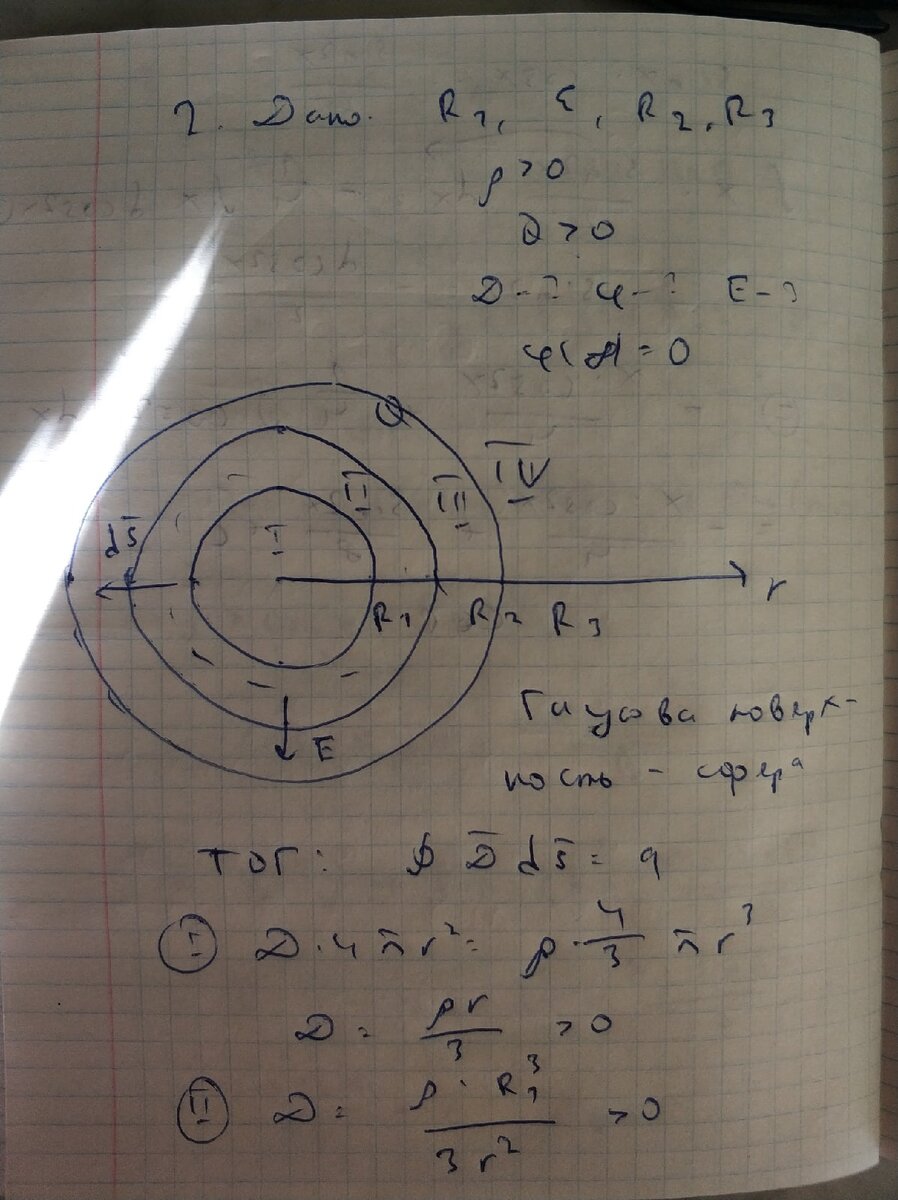 2. Дано. R₁, ε, R₂, R₃
ρ > 0
Q > 0
D - ? φ - ? E - ?
φ(∞) = 0
Q
I II III IV
dS̄
R₁ R₂ R₃ r
E̅
Гаусова поверх-
ность - сфера
ТОГ: ∮ D̅ dS̄ = q
I D · 4πr² = ρ · 4/3 πr³
D = ρr/3 > 0
II D = ρ · R₁³ / 3r² > 0